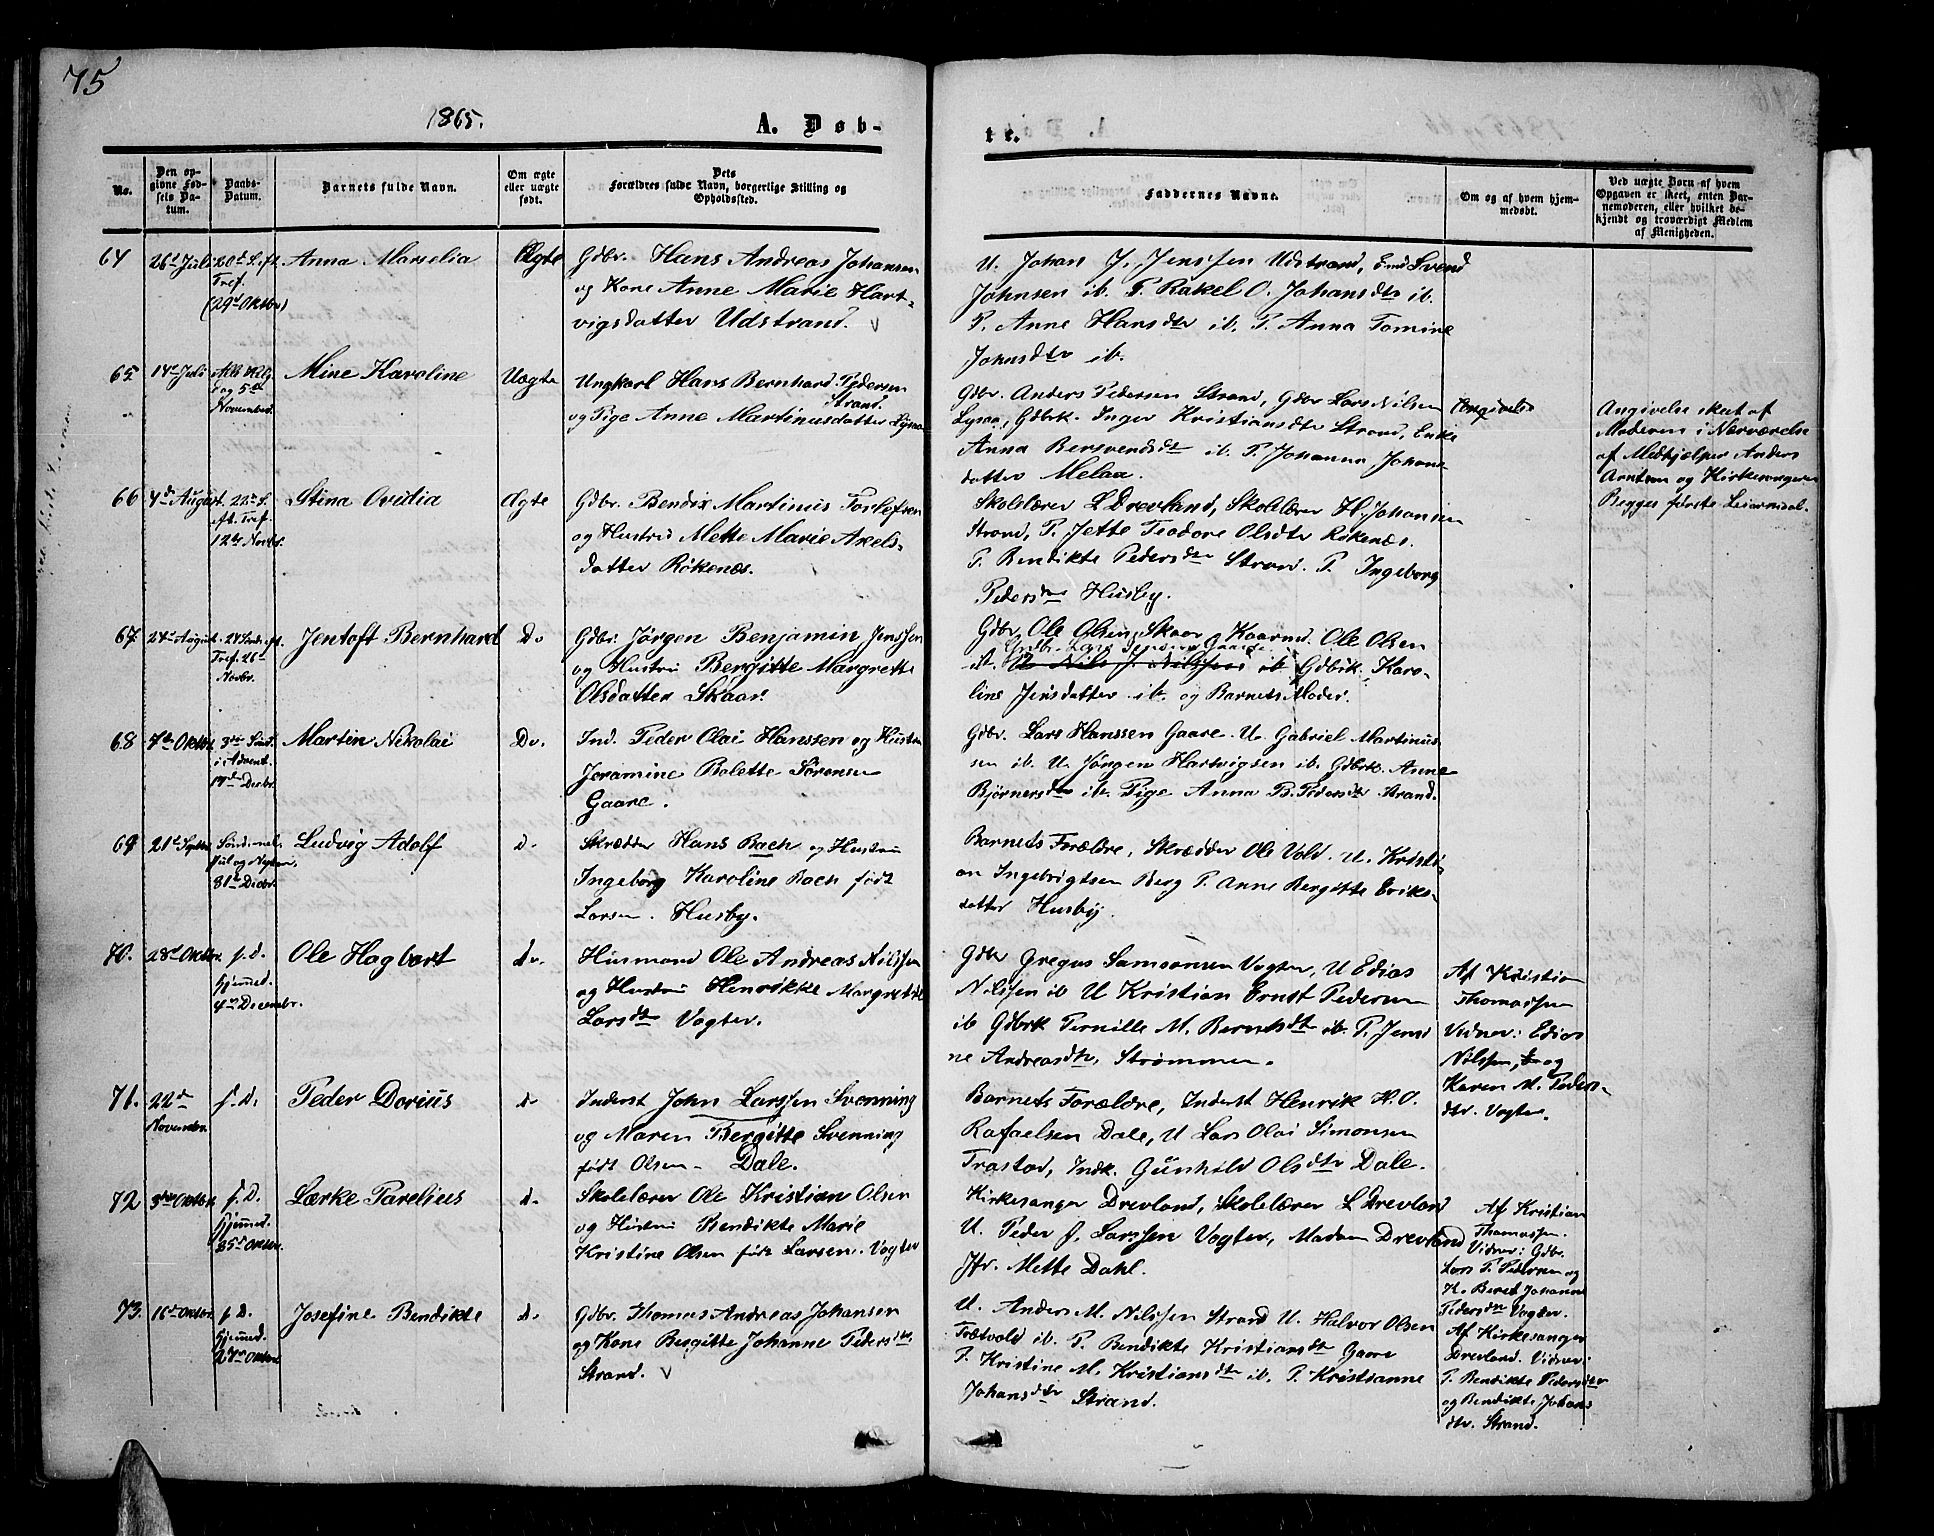 75
1865.
A. Døb-
te.
No.
Den op-
givne Fød-
sels Da-
tum.
Daabs-
Datum.
Barnets fulde Navn.
Om ægte
eller uægte
født.
Dets
Forældres fulde Navn, borgerlige Stilling og
Opholdssted.
Faddernes Navne.
Om og af hvem hjem-
medøbt.
Ved uægte Børn af hvem
Opgaven er skeet, enten Bar-
nemoderen, eller hvilket be-
kjendt og troværdigt Medlem
af Menigheden.
64
26d Juli
20d S. eft.
Tref.
(29d Oktbr)
Anna Marselia
Ægte
Gdbr. Hans Andreas Johansen
og Kone Anne Marie Hart-
vigsdatter Udstrand.
U. Johan J. Jenssen Udstrand, Svend
Johnsen ib. P. Rakel O. Johansdtr ib.
P. Anne Hansdtr ib. P. Anna Tomine
Johnsdtr ib.
65
14d Juli
Alle Helg.
dag 5te
Novembr.
Mine Karoline
Uægte
Ungkarl Hans Bernhard Pedersen
Strand.
og Pige Anne Martinusdatter Lysaa
Gdbr. Anders Pedersen Strand, Gdbr Lars Nilsen
Lysaa, Gdbrk. Inger Kristiansdtr Strand, Enke
Anna Bersvendsdtr ib. P. Johanna Johans
datter Melaa.
Angivelse skeet af
Moderen i Nærværelse
af Medhjelper Anders
Arntsen og Kirkesangeren
Begges første Leiermaal.
66
4de August
22de S.
eft. Tref.
12te Novbr.
Stina Ovidia
Ægte
Gdbr. Bendix Martinus Torlefsen
og Hustru Mette Marie Axels-
datter Røkenes.
Skolelærer L Drevland, Skolelærer H. Johansen
Strand, P. Jette Teodore Olsdtr Røkenæs.
P. Bendikte Pedersdtr Strand. P. Ingeborg
Pedersdtr Husby.
67
24de August.
24 Sönd. eft.
Tref. 26de
Novbr.
Jentoft Bernhard
Do
Gdbr. Jørgen Benjamin Jenssen
og Hustru Bergitte Margrette
Olsdatter Skaar.
Gdbr Ole Olsen Skaar, Ole Olsen
Gdbr. Lars Gaare
ib. U. Nils J. Nilssen ib. Gdbrk. Karo-
line Jensdatter ib. og Barnets Moder.
68
7de Oktbr
3die Sönd.
i Advent.
17de Decbr.
Martin Nikolai
Do.
Ind. Peder Olai Hanssen og Hustru
Joramine Bolette Sørensen
Gaare.
Gdbr. Lars Hanssen Gaare. U. Gabriel Martinus-
sen ib. U. Jørgen Hartvigsen ib. Gdbrk. Anne
Bjørnersdtr ib. Pige Anna B. Pedersdtr Strand.
69
21d Septbr
Sönd. mel.
Jul og Nytaar,
31te Decbr.
Ludvig Adolf
do.
Skrædder Hans Bach og Hustru
Ingeborg Karoline Bach født
Larsen. Husby.
Barnets Forældre, Skrædder Ole Vold. U. Kristi-
an Ingebrigtsen Berg P. Anne Bergitte Eriks-
datter Husby.
70.
28d Oktbr.
f. D.
hjemmed.
4de Decembr.
Ole Hagbart
do.
Husmand Ole Andreas Nilssen
og Hustru Henrikke Margrethe
Larsdtr Vogter.
Gdbr Gregus Samsonsen Vogter, U Edias
Nilssen ib U Kristian Ernst Pedersen
ib Gdbrk Pernille M. Berntsdtr ib P. Jensi
ne Andreasdtr Strømmen.
Af Kristian
Thomassen
Vidner: Edias
Nilssen, og
Karen M. Peders-
dtr. Vogter.
71.
22de
Novembr.
f. D.
Peder Dorius
do
Inderst John Larssen Svenning
og Maren Bergitte Svenning
født Olsen - Dale.
Barnets Forældre, Inderst Henrik K. O.
Rafaelsen Dale, U Lars Olai Simonsen
Trastad, Indk. Gunhild Olsdtr Dale.
72
3die Oktbr
f. D.
hjemmed.
25d Oktbr.
Lærke Parelius
do.
Skolelærer Ole Kristian Olsen
og Hustru Bendikte Marie
Kristine Olsen født Larsen. Vogter
Kirkesanger Drevland, Skolelærer L Drevland
U. Peder J. Larssen Vogter, Madam Drevland
Jfr. Mette Dahl.
Af Kristian
Thomassen.
Vidner: Gdbr.
Lars P. Pedersen og
K. Beret Johanna
Pedersdtr Vogter.
73.
16de Oktbr.
f. D.
hjemmed.
27de Oktbr
Josefine Bendikte
do.
Gdbr. Thomas Andreas Johansen
og Kone Bergitte Johanne Pedersdtr
Strand.
U. Anders M. Nilssen Strand U. Halvor Olsen
Trætvold ib. P. Bendikte Kristiansdtr Gaare
P. Kristine M. Kristiansdtr ib. P. Kristianne
Johansdtr Strand.
Af Kirkesanger
Drevland. Vidner:
P. Bendikte Pedersdtr
og Bendikte Johans
dtr. Strand.